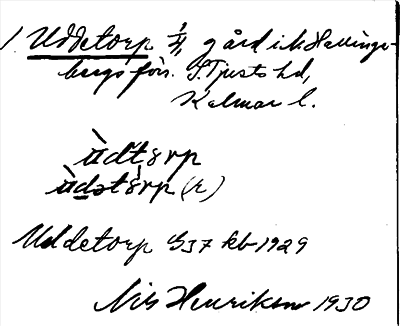 1 Uddetorp 1/4 gård i k Hallings-
bergs förs. S. Tjusts hd,
Kalmar l.
àdtɜrp
àdətɜrp (r)
Uddetorp G37 kb 1929
Nils Henrikson 1930